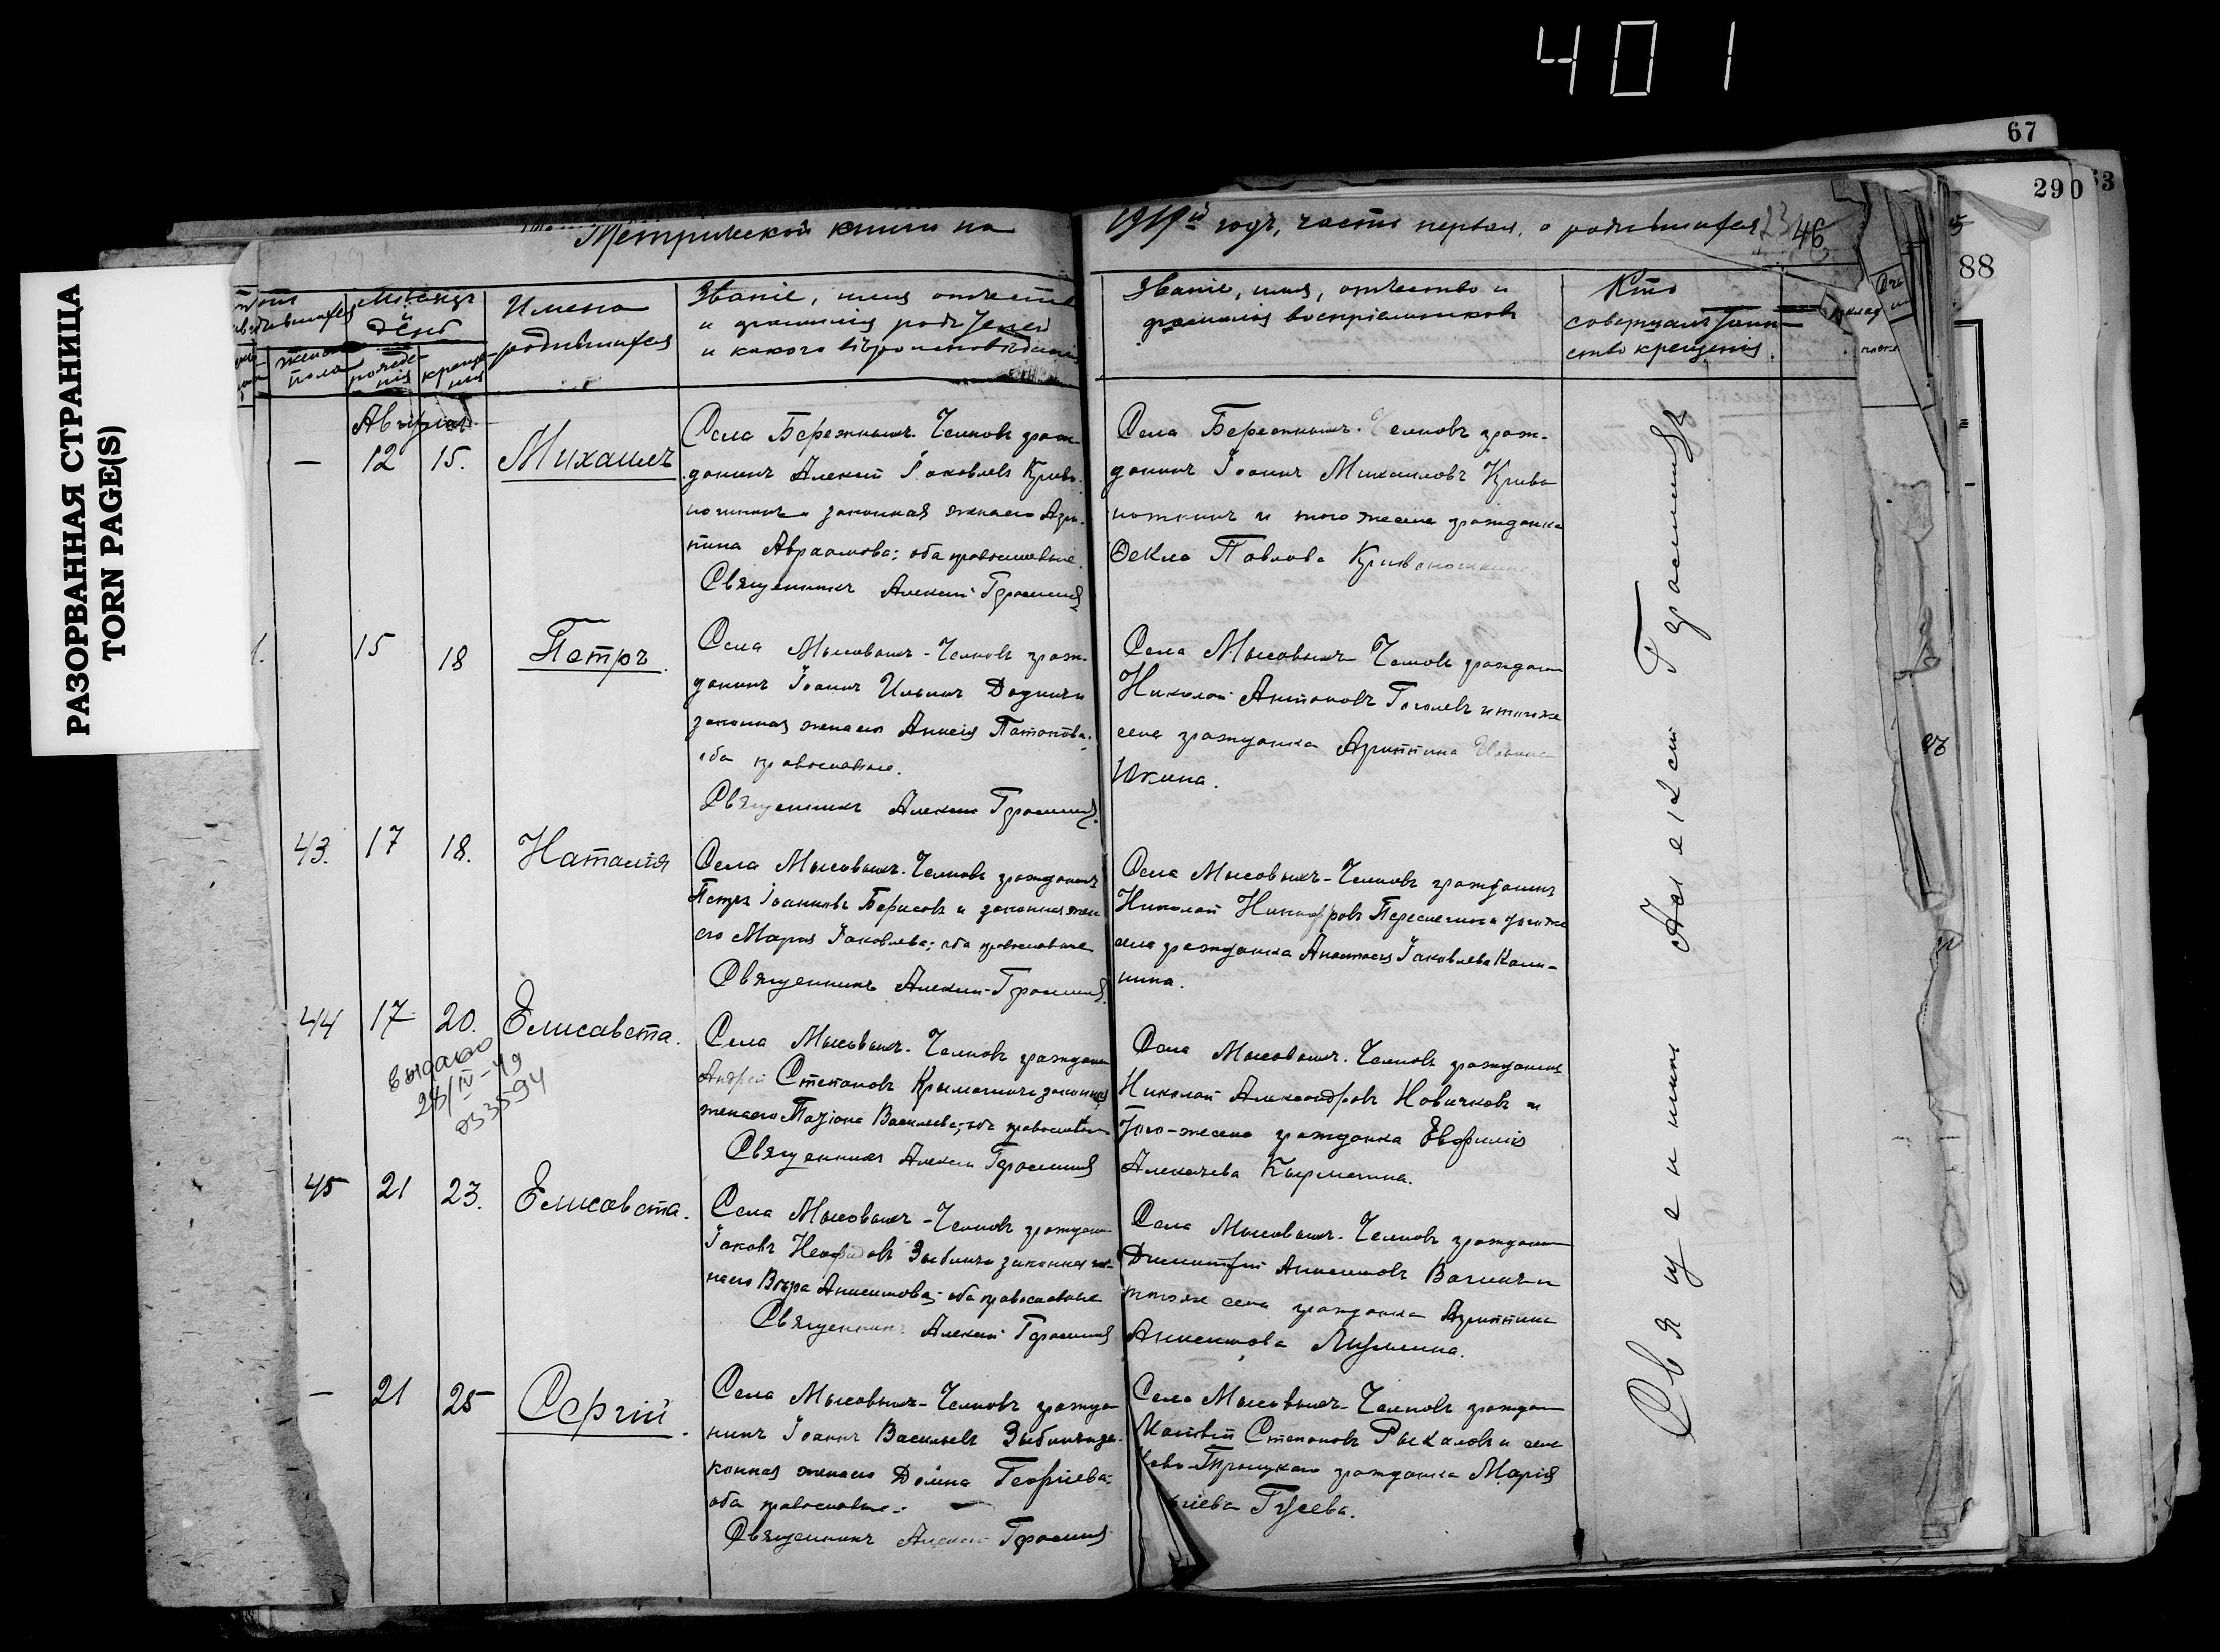 401
67
290
53
88
РАЗОРВАННАЯ СТРАНИЦА
TORN PAGE(S)
Метрической книги на 1919й годъ, часть первая, о родившихся
46
женск пола
Мѣсяцъ и день
рожденія
крещенія
Имена родившихся
Званіе, имя, отчество
и фамилія родителей
и какого вѣроисповѣданія
Званіе, имя, отчество и
фамилія воспріемниковъ
Кто
совершалъ таин-
ство крещенія.
Августъ
— 12 15. Михаилъ
Села Бережныхъ-Челновъ граж-
данинъ Алексій Іаковлевъ Криво-
ножкинъ и законная жена его Агри-
пина Авраамова; оба православные.
Священникъ Алексій Герасимовъ
Села Бережныхъ-Челновъ граж-
данинъ Іоаннъ Михаиловъ Криво
ножкинъ и того же села гражданка
Ѳекла Павлова Кривоножкина.
15 18 Петръ.
Села Мысовыхъ-Челновъ граж-
данинъ Іоаннъ Ильинъ и
законная жена его Анисія
оба православные.
Священникъ Алексій Герасимовъ.
Села Мысовыхъ Челновъ гражданинъ
Николай Антоновъ Гоголевъ и того же
села гражданка Агриппина
Юкина.
43. 17 18. Наталія
Села Мысовыхъ-Челновъ гражданинъ
Петръ Іоанновъ Борисовъ и законная жена
его Марія Іаковлева; оба православные
Священникъ Алексій Герасимовъ.
Села Мысовыхъ-Челновъ гражданинъ
Николай Никифоровъ и того же
села гражданка Анастасія Іаковлева Кали-
нина.
44 17 20. Елисавета.
выдано
28/IV-49
Села Мысовыхъ-Челновъ гражданинъ
Андрей Степановъ и законная
жена его Татіана Васильева; оба православные
Священникъ Алексій Герасимовъ
Села Мысовыхъ-Челновъ гражданинъ
Николай Александровъ Новичковъ и
того-же села гражданка Евфимія
Алексѣева
45 21 23. Елисавета.
Села Мысовыхъ-Челновъ гражданинъ
Іаковъ и законная же-
на его Вѣра Анисимова; оба православные
Священникъ Алексій Герасимовъ
Села Мысовыхъ-Челновъ гражданинъ
Димитрій Анисимовъ Вагинъ и
того же села гражданка Агриппина
Анисимова
— 21 25 Сергій.
Села Мысовыхъ-Челновъ гражда-
нинъ Іоаннъ Васильевъ и за-
конная жена его Домна Георгіева;
оба православные.
Священникъ Алексій Герасимовъ
Села Мысовыхъ-Челновъ гражданинъ
Матвѣй Степановъ Рыкаловъ и села
гражданка Марія
Гусева.
Священникъ Алексій Герасимовъ